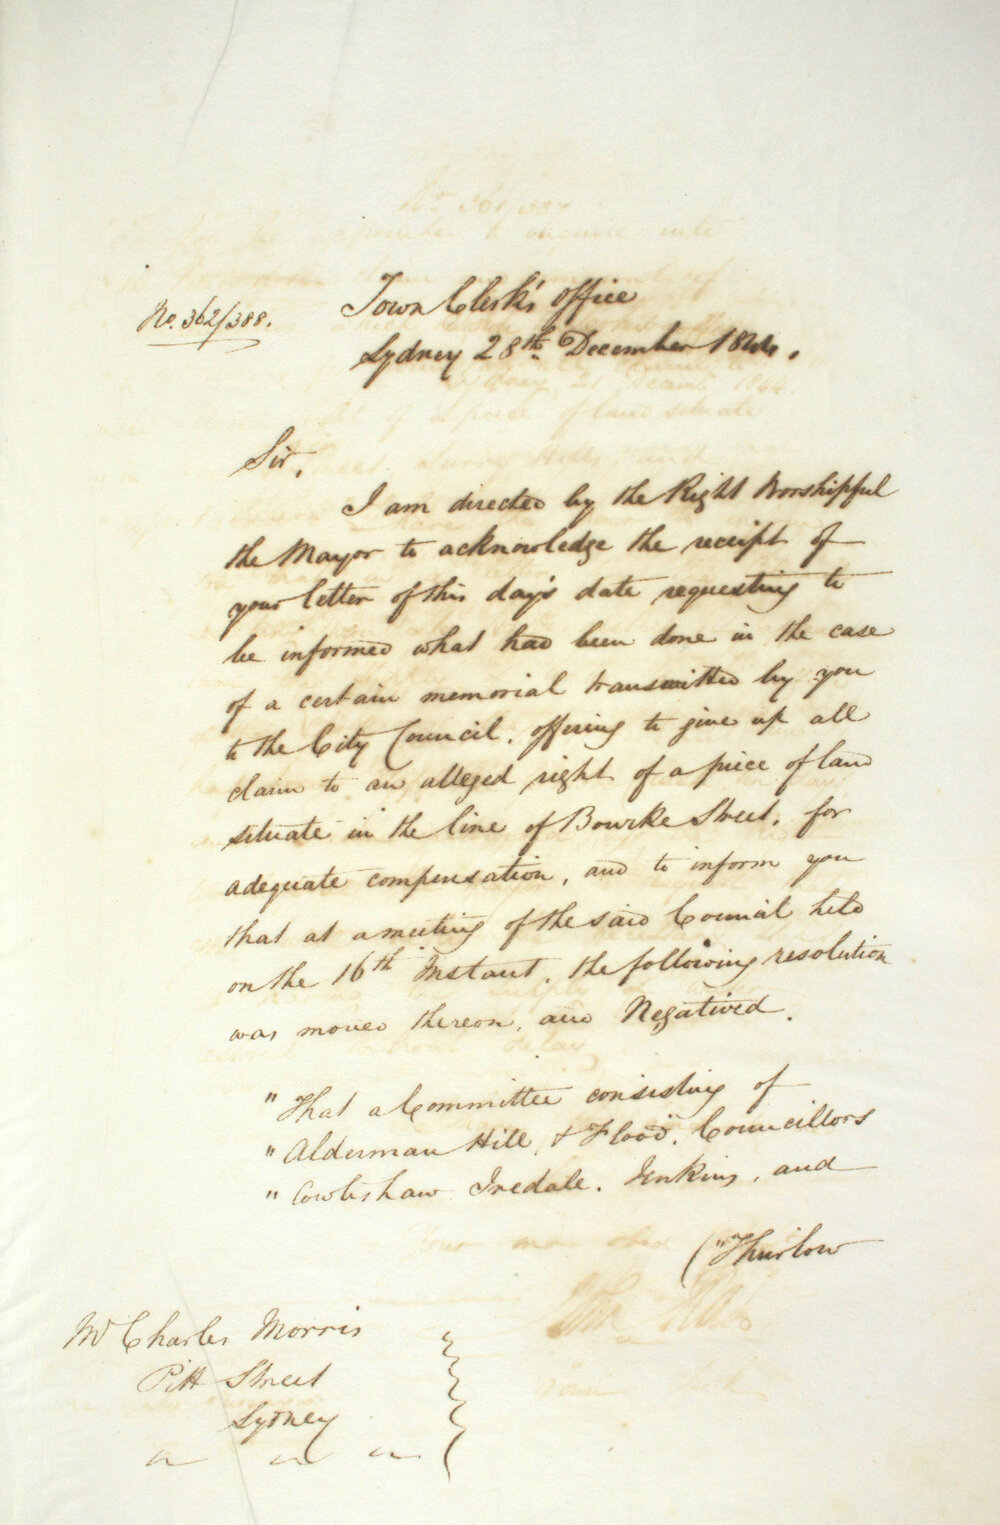 No. 362/388.
Town Clerk's Office
Sydney 28th December 1844.
Sir,
I am directed by the Right Worshipful
the Mayor to acknowledge the receipt of
your letter of this day's date requesting to
be informed what had been done in the case
of a certain memorial transmitted by you
to the City Council, offering to give up all
claim to an alleged right of a piece of land
situate in the line of Bourke Street, for
adequate compensation, and to inform you
that at a meeting of the said Council held
on the 16th Instant, the following resolution
was moved thereon, and Negatived.
"That a Committee consisting of
"Alderman Hill, & Flood, Councillors
"Cowlishaw Iredale, Jenkins, and
("Thurlow
Mr Charles Morris
Pitt Street
Sydney